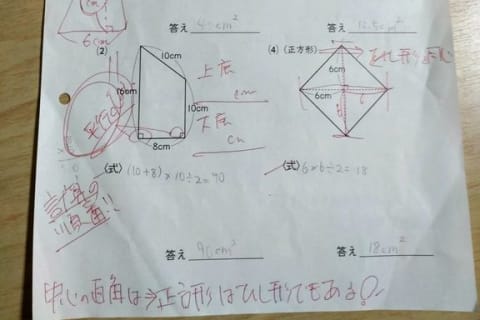 6cm
答え 45cm²
答え 12.5cm²
(2)
10cm
16cm
10cm
8cm
平行
上底
cm
下底
cm
(4) (正方形)
ひし形
6cm
6cm
6
(式) (10+8)×10÷2=90
(式) 6×6÷2=18
計算の
順番!!
答え 90cm²
答え 18cm²
中心の直角は⇒正方形はひし形でもある!